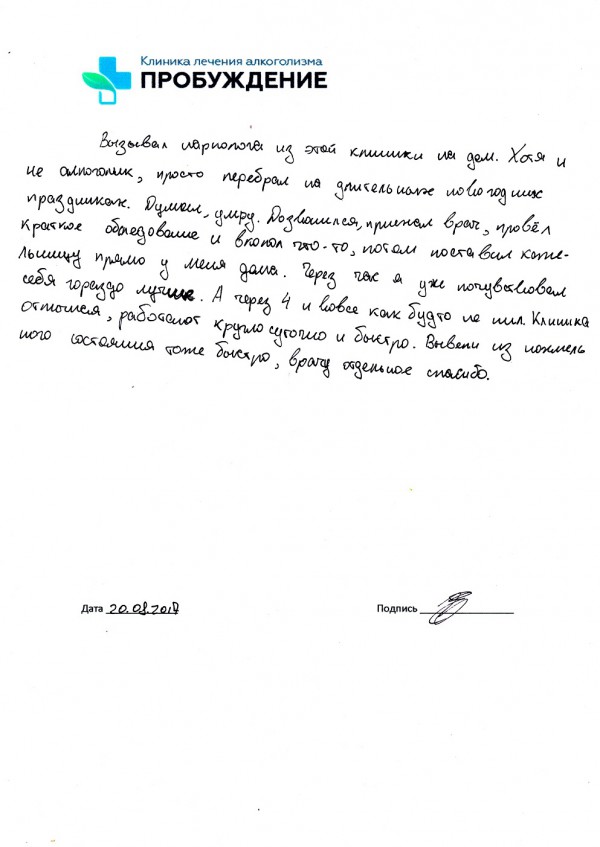 Клиника лечения алкоголизма
ПРОБУЖДЕНИЕ
Вызывал нарколога из этой клиники на дом. Хотя и
не алкоголик, просто перебрал на длительных новогодних
праздниках. Думал, умру. Дозвонился, приехал врач, провёл
краткое обследование и вколол что-то, потом поставил капе-
льницу прямо у меня дома. Через час я уже почувствовал
себя гораздо лучше. А через 4 и вовсе как будто не пил. Клиника
отличная, работают круглосуточно и быстро. Вывели из похмель
ного состояния тоже быстро, врачу отдельное спасибо.
Дата Подпись